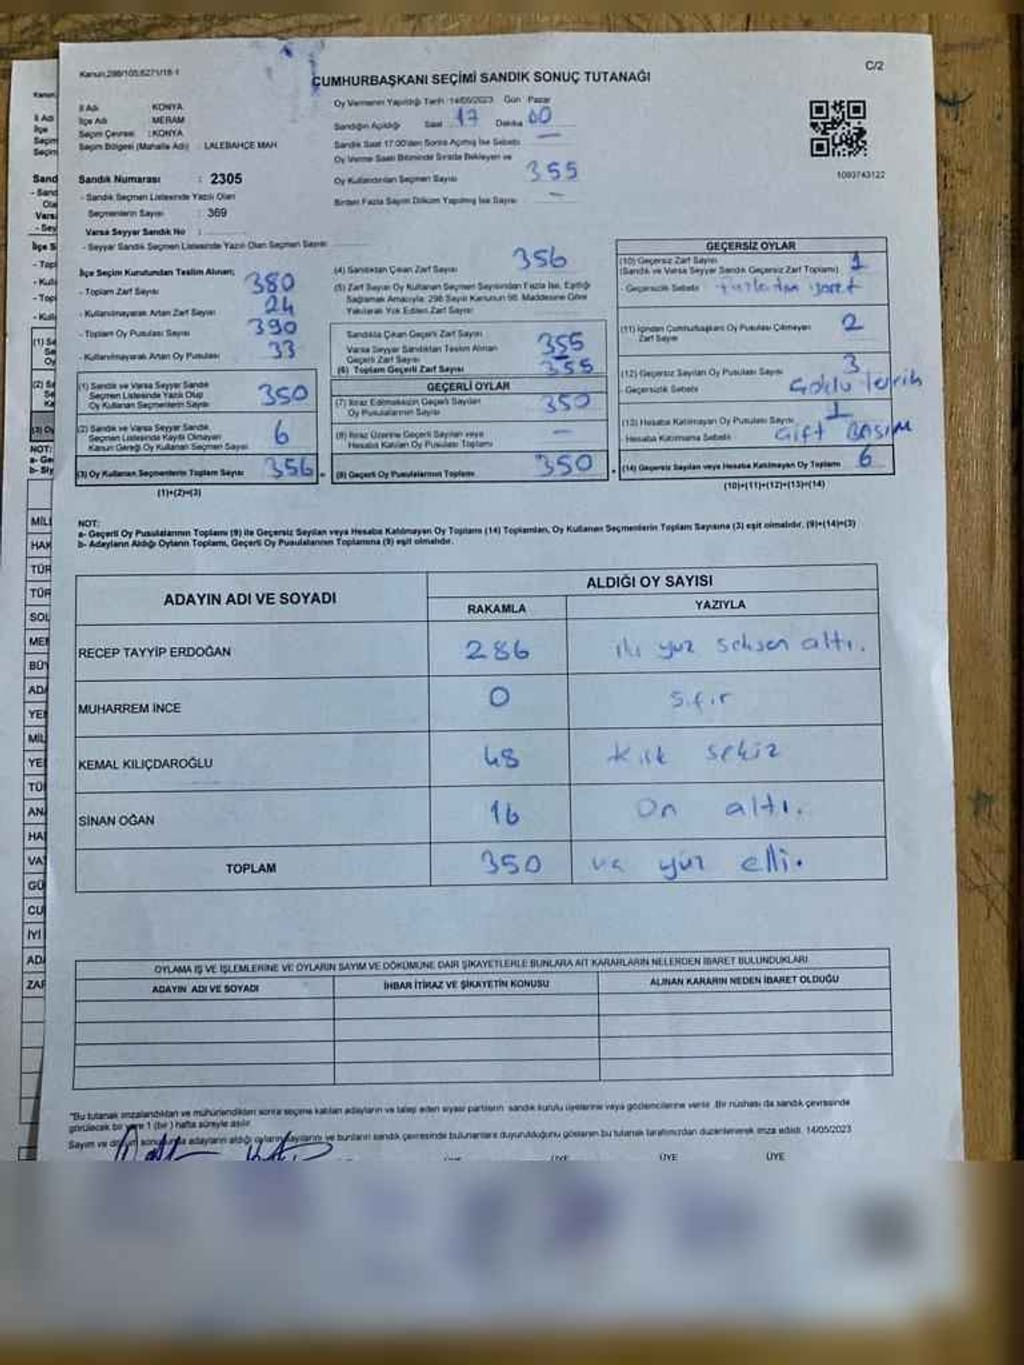 Kanun:298/105;6271/16-1
CUMHURBAŞKANI SEÇİMİ SANDIK SONUÇ TUTANAĞI
C/2
İl Adı : KONYA
İlçe Adı : MERAM
Seçim Çevresi : KONYA
Seçim Bölgesi (Mahalle Adı) : LALEBAHÇE MAH
Sandık Numarası : 2305
- Sandık Seçmen Listesinde Yazılı Olan
Seçmenlerin Sayısı : 369
Varsa Seyyar Sandık No :
- Seyyar Sandık Seçmen Listesinde Yazılı Olan Seçmen Sayısı
Oy Vermenin Yapıldığı Tarih :14/05/2023 Gün Pazar
Sandığın Açıldığı Saat 17 Dakika 00
Sandık Saat 17.00'den Sonra Açılmış İse Sebebi —
Oy Verme Saati Bitiminde Sırada Bekleyen ve
Oy Kullandırılan Seçmen Sayısı 355
Birden Fazla Sayım Döküm Yapılmış İse Sayısı —
1093743122
İlçe Seçim Kurulundan Teslim Alınan;
- Toplam Zarf Sayısı 380
- Kullanılmayarak Artan Zarf Sayısı 24
- Toplam Oy Pusulası Sayısı 390
- Kullanılmayarak Artan Oy Pusulası 33
(1) Sandık ve Varsa Seyyar Sandık
Seçmen Listesinde Yazılı Olup
Oy Kullanan Seçmenlerin Sayısı 350
(2) Sandık ve Varsa Seyyar Sandık
Seçmen Listesinde Kayıtlı Olmayan
Kanun Gereği Oy Kullanan Seçmen Sayısı 6
(3) Oy Kullanan Seçmenlerin Toplam Sayısı 356
(1)+(2)=(3)
(4) Sandıktan Çıkan Zarf Sayısı 356
(5) Zarf Sayısı Oy Kullanan Seçmen Sayısından Fazla İse, Eşitliği
Sağlamak Amacıyla, 298 Sayılı Kanunun 98. Maddesine Göre
Yakılarak Yok Edilen Zarf Sayısı
Sandıkta Çıkan Geçerli Zarf Sayısı 355
Varsa Seyyar Sandıktan Teslim Alınan
Geçerli Zarf Sayısı —
(6) Toplam Geçerli Zarf Sayısı 355
GEÇERLİ OYLAR
(7) İtiraz Edilmeksizin Geçerli Sayılan
Oy Pusulalarının Sayısı 350
(8) İtiraz Üzerine Geçerli Sayılan veya
Hesaba Katılan Oy Pusulası Toplamı —
(9) Geçerli Oy Pusulalarının Toplamı 350
GEÇERSİZ OYLAR
(10) Geçersiz Zarf Sayısı 1
(Sandık ve Varsa Seyyar Sandık Geçersiz Zarf Toplamı)
- Geçersizlik Sebebi
(11) İçinden Cumhurbaşkanı Oy Pusulası Çıkmayan
Zarf Sayısı 2
(12) Geçersiz Sayılan Oy Pusulası Sayısı 3
- Geçersizlik Sebebi Çoklu tercih
(13) Hesaba Katılmayan Oy Pusulası Sayısı 1
- Hesaba Katılmama Sebebi Çift BASIM
(14) Geçersiz Sayılan veya Hesaba Katılmayan Oy Toplamı 6
(10)+(11)+(12)+(13)=(14)
NOT:
a- Geçerli Oy Pusulalarının Toplamı (9) ile Geçersiz Sayılan veya Hesaba Katılmayan Oy Toplamı (14) Toplamları, Oy Kullanan Seçmenlerin Toplam Sayısına (3) eşit olmalıdır. (9)+(14)=(3)
b- Adayların Aldığı Oyların Toplamı, Geçerli Oy Pusulalarının Toplamına (9) eşit olmalıdır.
ADAYIN ADI VE SOYADI
ALDIĞI OY SAYISI
RAKAMLA YAZIYLA
RECEP TAYYİP ERDOĞAN 286 iki yüz seksen altı.
MUHARREM İNCE 0 sıfır
KEMAL KILIÇDAROĞLU 48 kırk sekiz
SİNAN OĞAN 16 On altı.
TOPLAM 350 yüz elli.
OYLAMA İŞ VE İŞLEMLERİNE VE OYLARIN SAYIM VE DÖKÜMÜNE DAİR ŞİKAYETLERLE BUNLARA AİT KARARLARIN NELERDEN İBARET BULUNDUKLARI
ADAYIN ADI VE SOYADI İHBAR İTİRAZ VE ŞİKAYETİN KONUSU ALINAN KARARIN NEDEN İBARET OLDUĞU
"Bu tutanak imzalandıktan ve mühürlendikten sonra seçime katılan adayların ve talep eden siyasi partilerin sandık kurulu üyelerine veya gözlemcilerine verilir. Bir nüshası da sandık çevresinde
görülecek bir yere 1 (bir) hafta süreyle asılır.
Sayım ve döküm sonunda adayların aldığı oyların sayılarını ve bunların sandık çevresinde bulunanlara duyurulduğunu gösteren bu tutanak tarafımızdan düzenlenerek imza edildi. 14/05/2023
ÜYE ÜYE ÜYE ÜYE